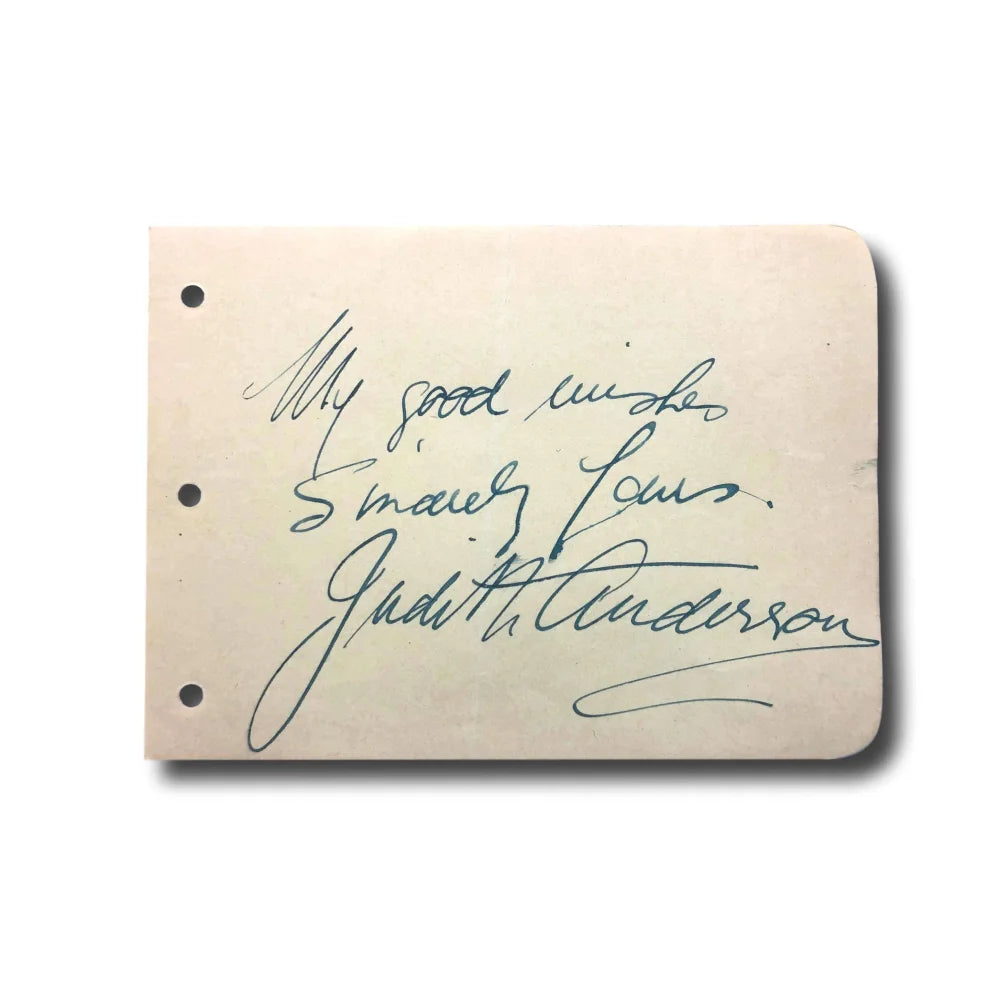 My good wishes
Sincerely Yours.
Judith Anderson